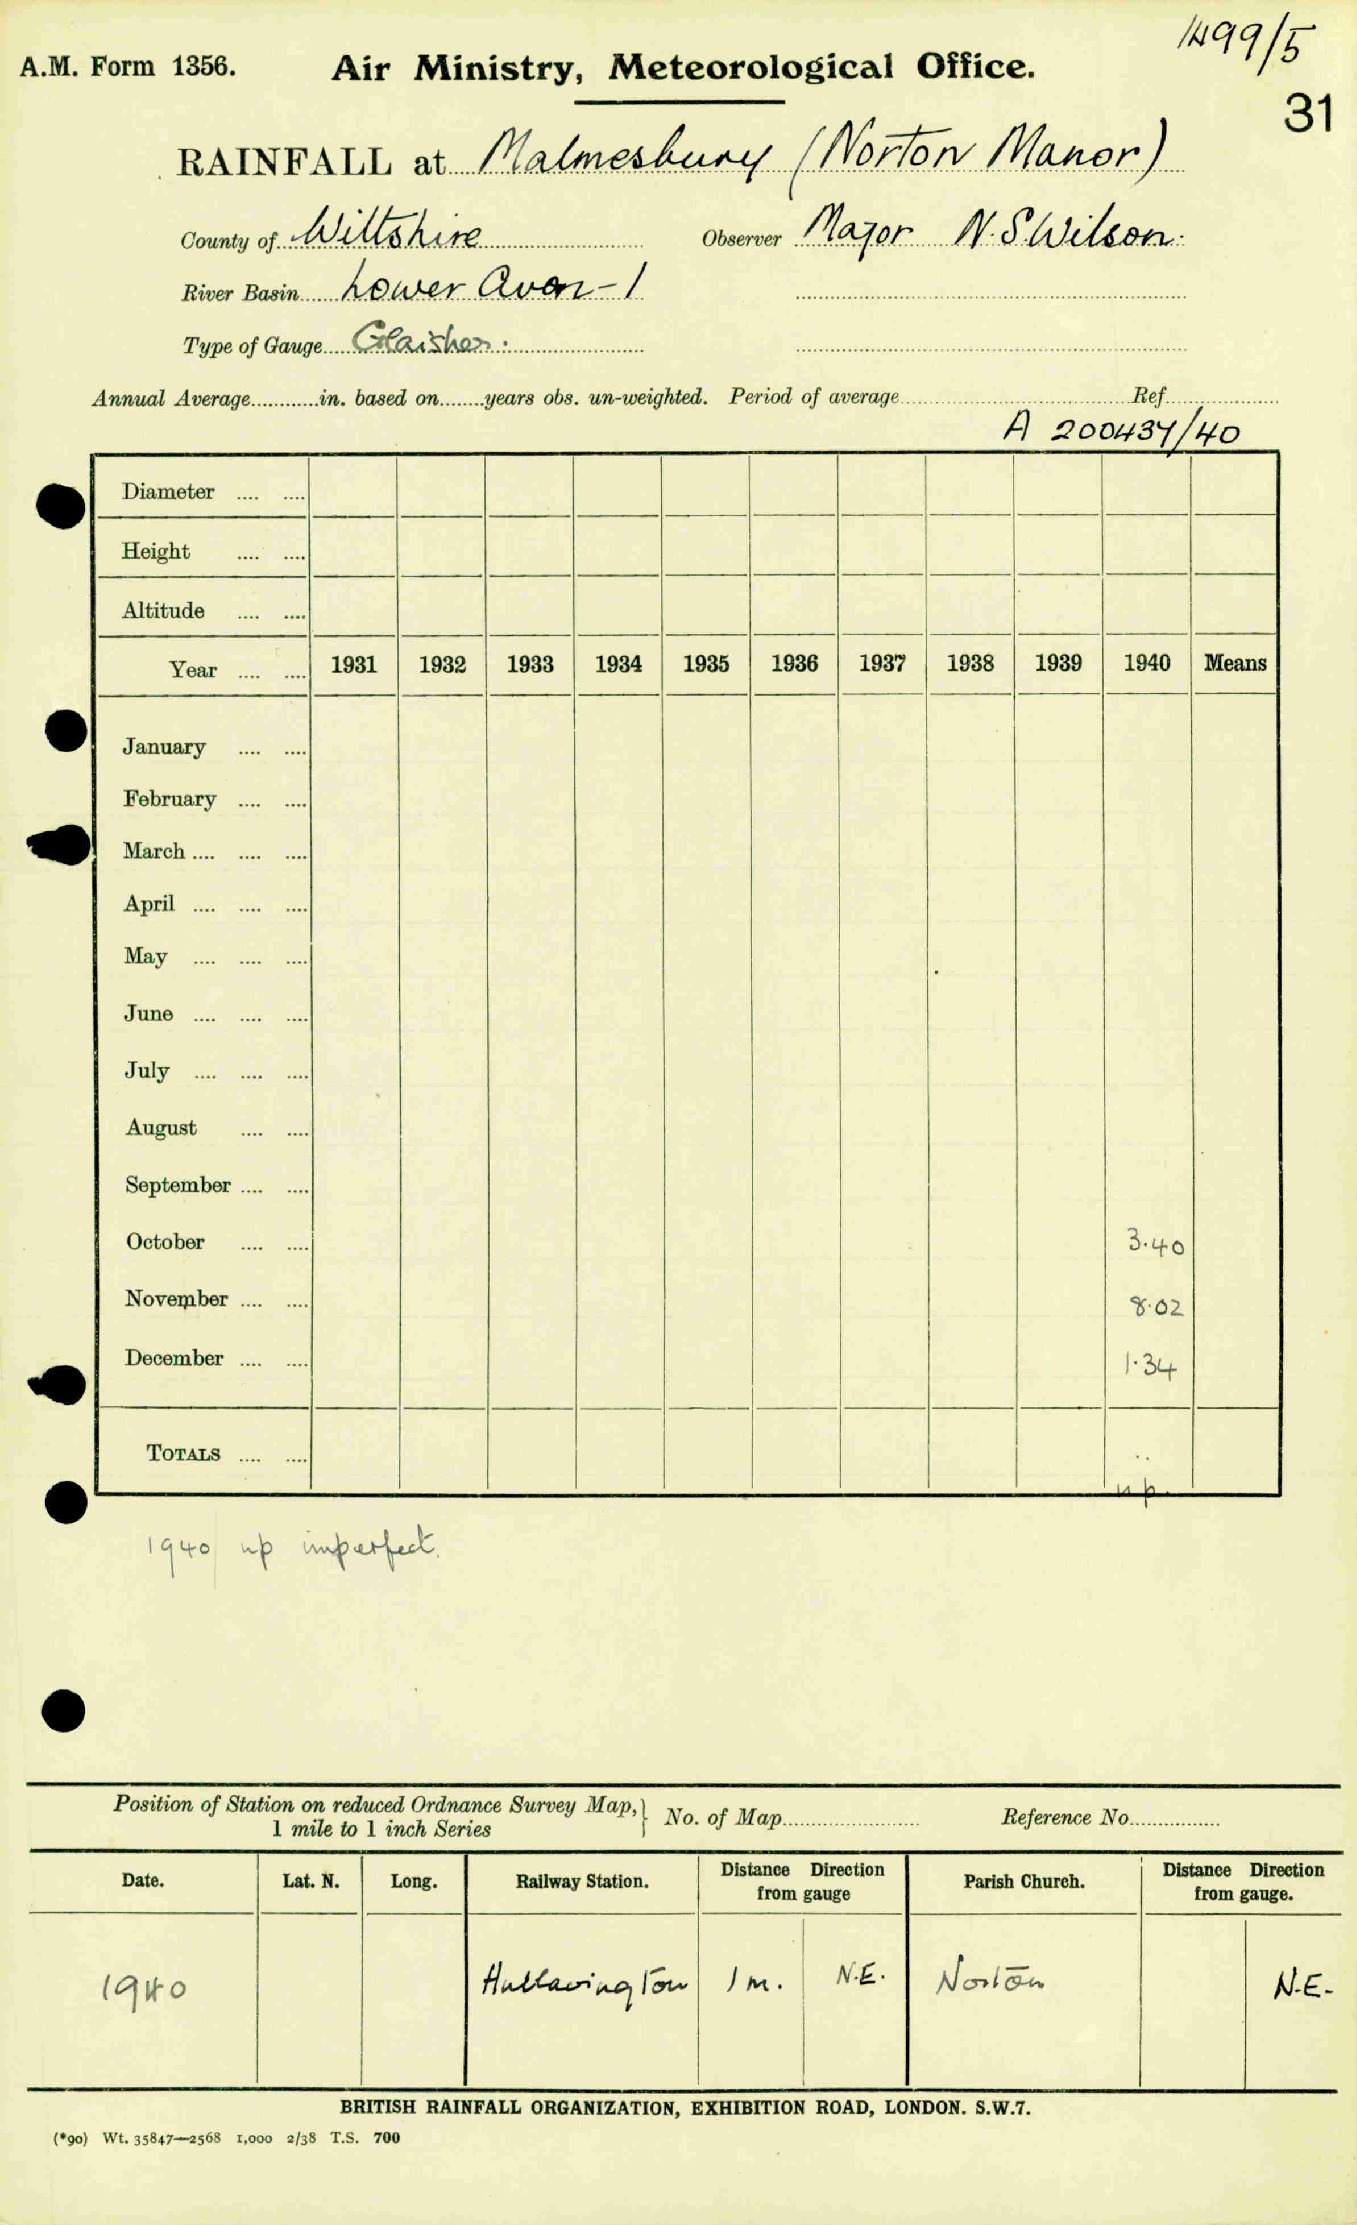 1499/5
A.M. Form 1356. Air Ministry, Meteorological Office.
31
RAINFALL at Malmesbury (Norton Manor)
County of Wiltshire Observer Major N.S Wilson.
River Basin Lower Avon - 1
Type of Gauge Glaisher.
Annual Average............in. based on........years obs. un-weighted. Period of average Ref
A 200437/40
Diameter .... ....
Height .... ....
Altitude .... ....
Year .... .... 1931 1932 1933 1934 1935 1936 1937 1938 1939 1940 Means
January .... ....
February .... ....
March .... .... ....
April .... .... ....
May .... .... ....
June .... .... ....
July .... .... ....
August .... ....
September .... ....
October .... .... 3.40
November .... .... 8.02
December .... .... 1.34
TOTALS .... .... ..
np.
1940 np imperfect.
Position of Station on reduced Ordnance Survey Map, } No. of Map Reference No.
1 mile to 1 inch Series
Date. Lat. N. Long. Railway Station. Distance Direction from gauge Parish Church. Distance Direction from gauge.
1940 Hullavington 1 m. N.E. Norton N.E.
BRITISH RAINFALL ORGANIZATION, EXHIBITION ROAD, LONDON. S.W.7.
(*90) Wt. 35847—2568 1,000 2/38 T.S. 700